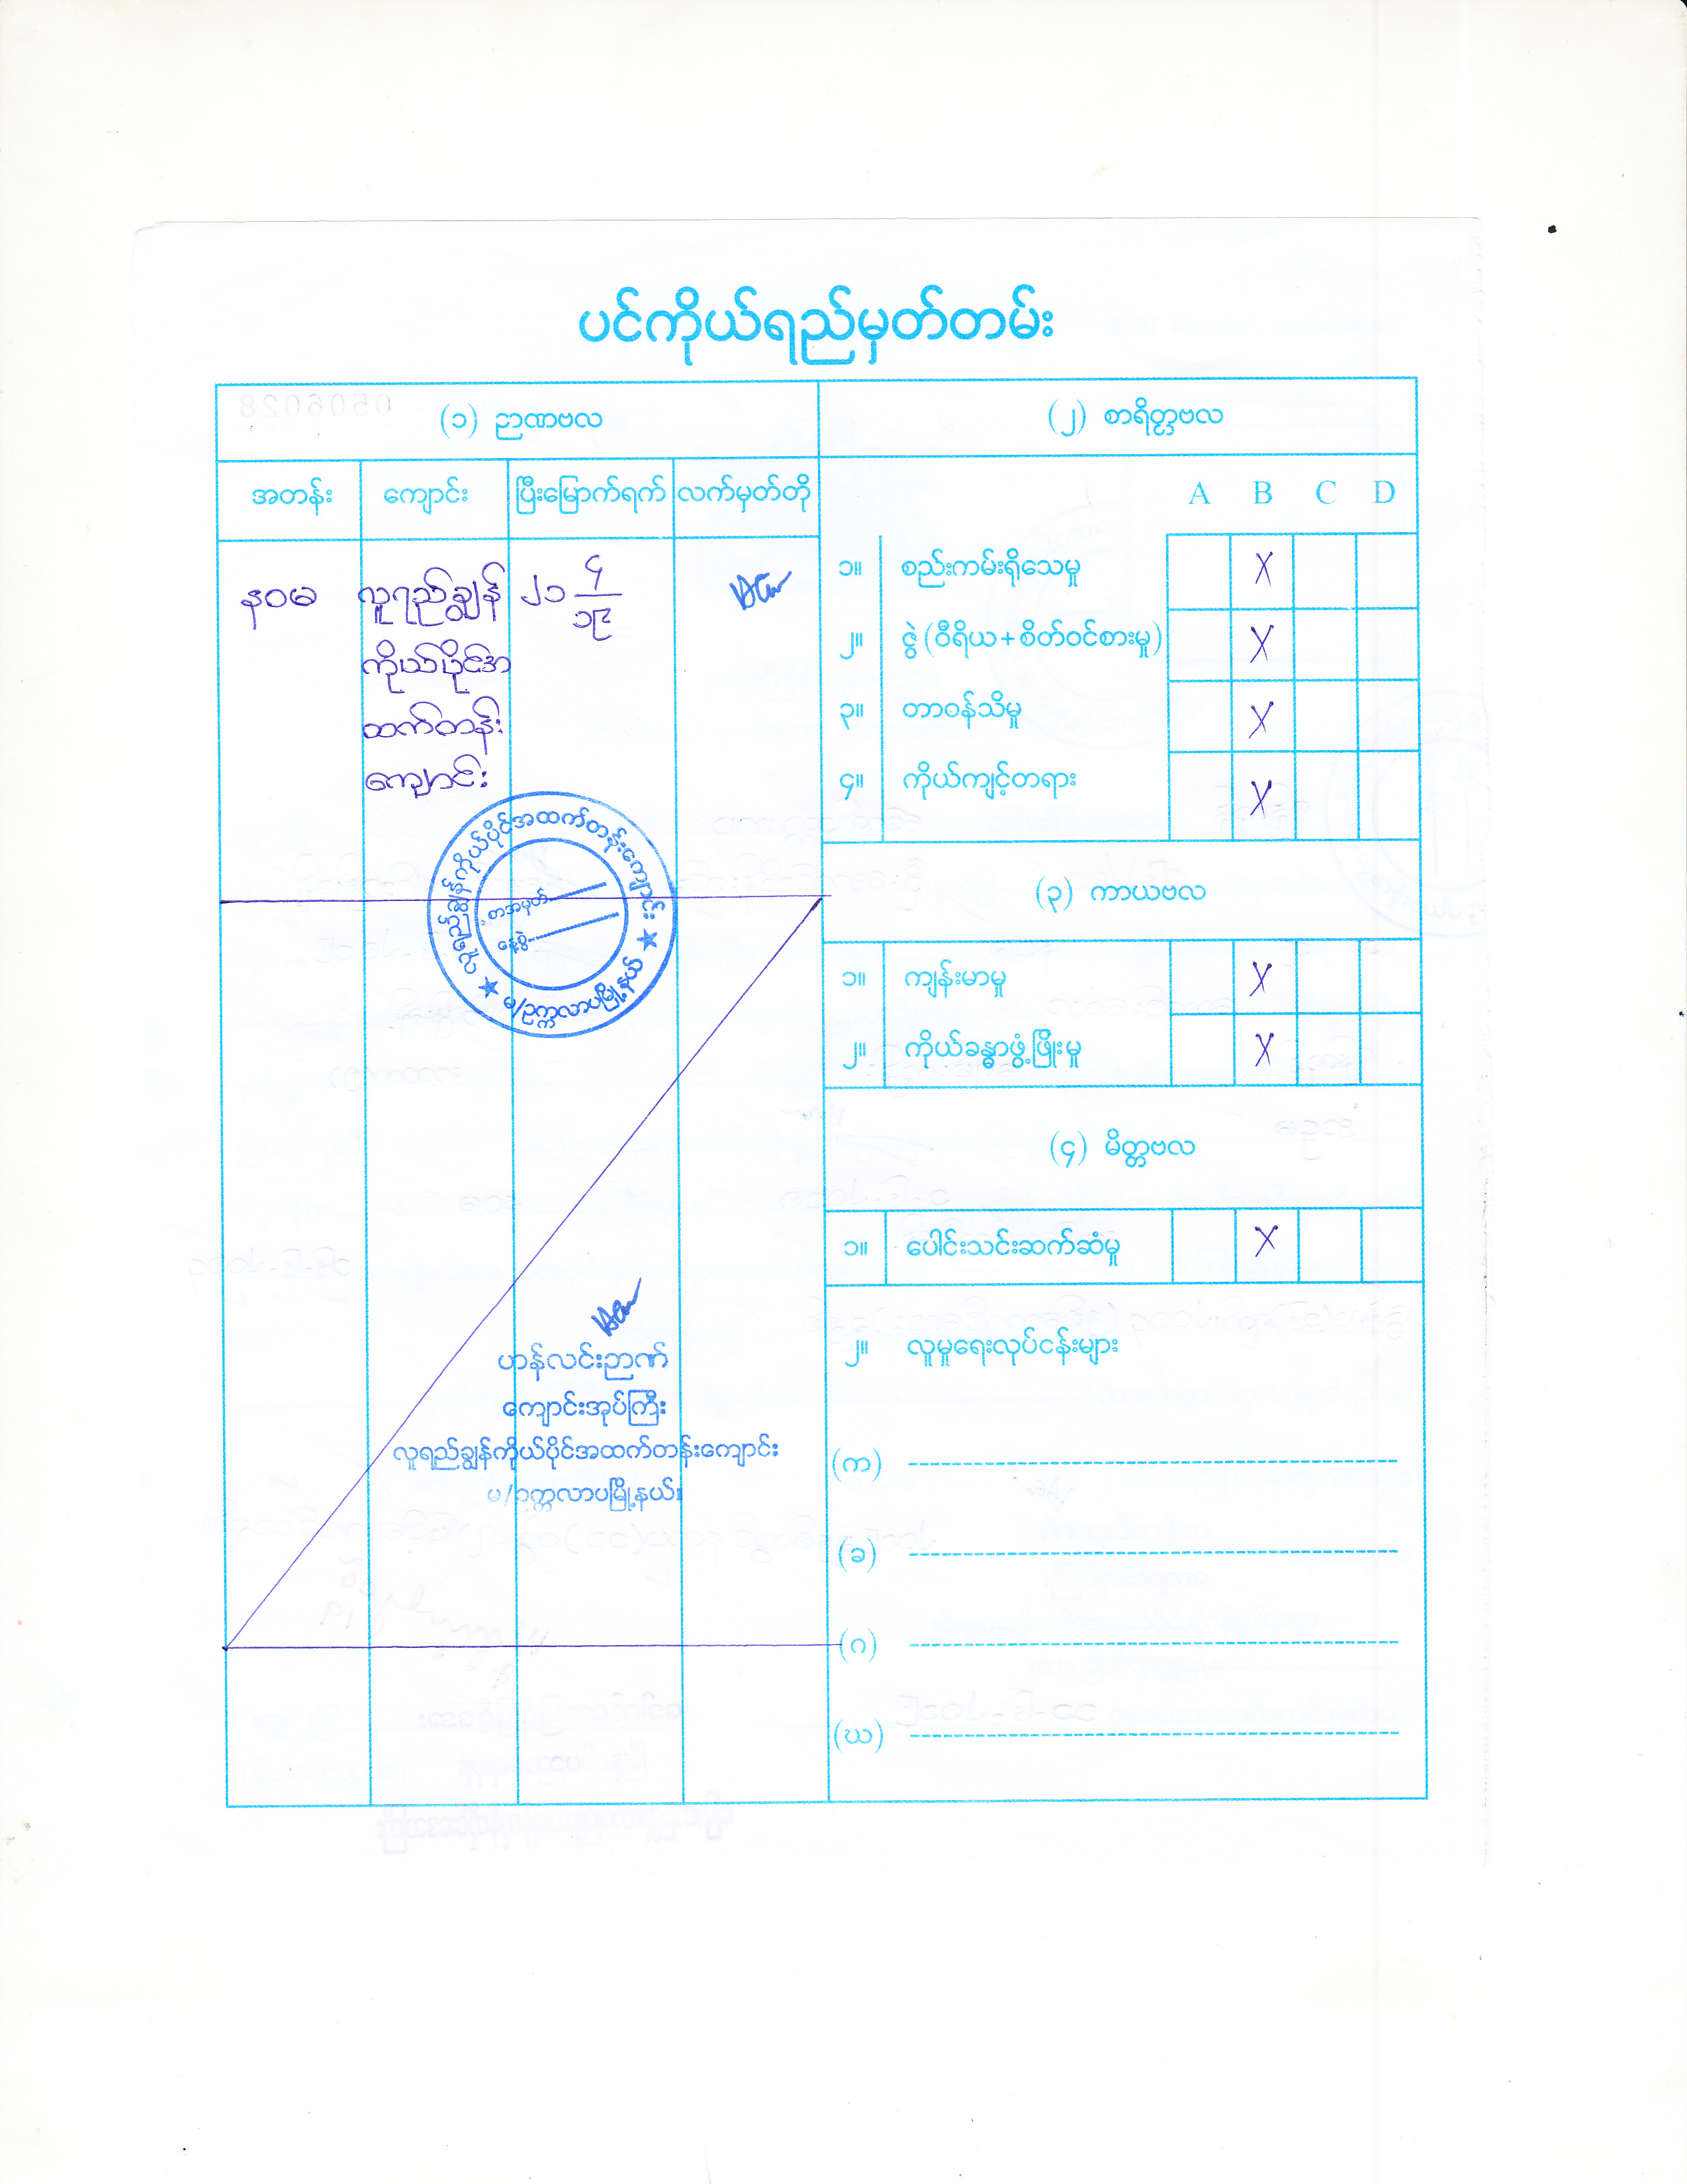 ပင်ကိုယ်ရည်မှတ်တမ်း
(၁) ဉာဏဗလ
အတန်း ကျောင်း ပြီးမြောက်ရက် လက်မှတ်တို
နဝမ လူရည်ချွန် ၂၁ ၄/၁၉
ကိုယ်ပိုင်အ
ထက်တန်း
ကျောင်း
လူရည်ချွန်ကိုယ်ပိုင်အထက်တန်းကျောင်း
စာအမှတ်
နေ့စွဲ
မ/ဥက္ကလာပမြို့နယ်
ဟန်လင်းဉာဏ်
ကျောင်းအုပ်ကြီး
လူရည်ချွန်ကိုယ်ပိုင်အထက်တန်းကျောင်း
မ/ဥက္ကလာပမြို့နယ်။
(၂) စာရိတ္တဗလ
A B C D
၁။ စည်းကမ်းရိုသေမှု X
၂။ ဇွဲ (ဝီရိယ + စိတ်ဝင်စားမှု) X
၃။ တာဝန်သိမှု X
၄။ ကိုယ်ကျင့်တရား X
(၃) ကာယဗလ
၁။ ကျန်းမာမှု X
၂။ ကိုယ်ခန္ဓာဖွံ့ဖြိုးမှု X
(၄) မိတ္တဗလ
၁။ ပေါင်းသင်းဆက်ဆံမှု X
၂။ လူမှုရေးလုပ်ငန်းများ
(က)
(ခ)
(ဂ)
(ဃ)